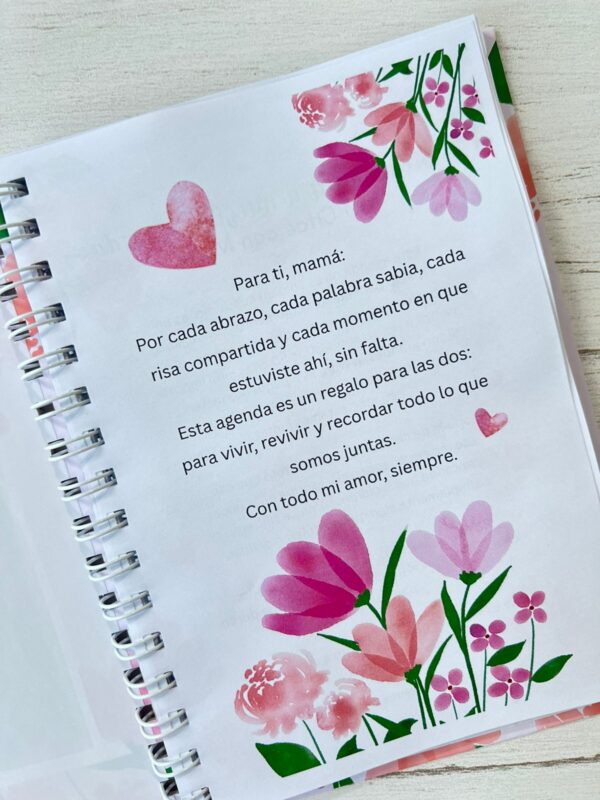 Para ti, mamá:
Por cada abrazo, cada palabra sabia, cada
risa compartida y cada momento en que
estuviste ahí, sin falta.
Esta agenda es un regalo para las dos:
para vivir, revivir y recordar todo lo que
somos juntas.
Con todo mi amor, siempre.